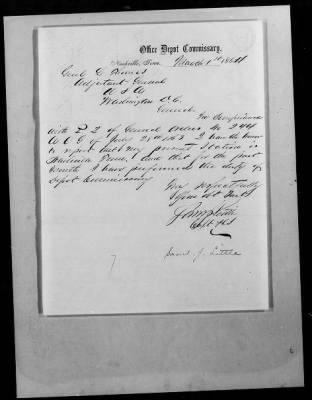 Office Depot Commissary,
Nashville, Tenn. March 1st 1864
Genl
Adjutant General
U S A
Washington D.C.
General
In Compliance
with of General Orders No 244
of July 28th 1863 I have the honor
to report that my present station is
Nashville Tenn. And that for the past
month I have performed the duty of
Depot Commissary
Very Respectfully
Your Obt Servt
Little
Capt
Saml. J. Little